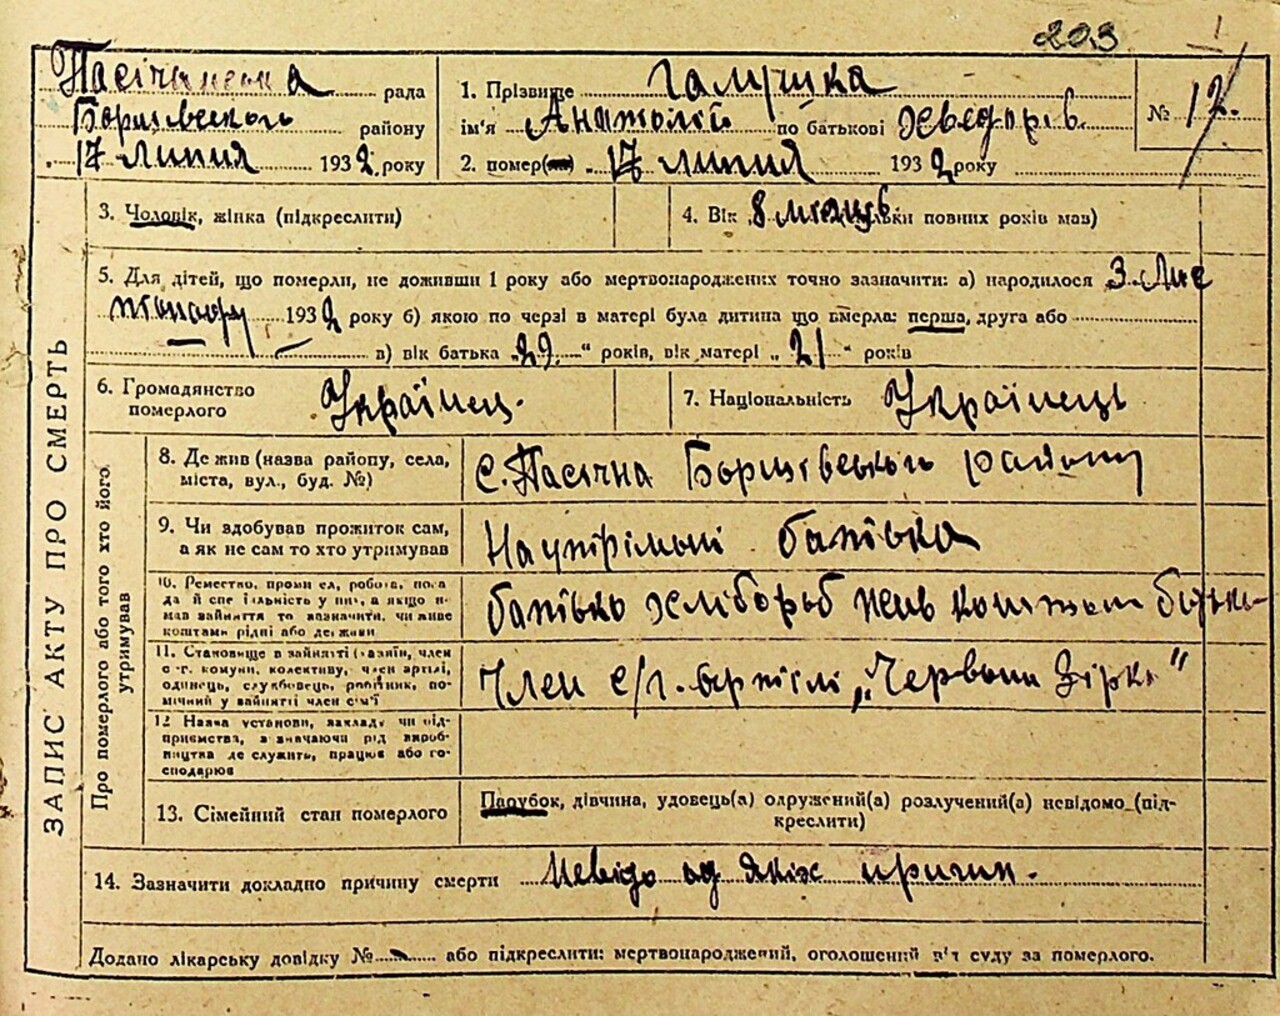 203
Пасічанська рада
Борщівського району
17 липня 1932 року
1. Прізвище Галушка
ім'я Анатолій по батькові Хведорів.
№ 12.
2. помер(ла) 17 липня 1932 року
3. Чоловік, жінка (підкреслити)
4. Вік 8 місяців (скільки повних років мав)
5. Для дітей, що померли, не доживши 1 року або мертвонароджених точно зазначити: а) народилося 3 Лис
топаду 1932 року б) якою по черзі в матері була дитина що вмерла: перша, друга або
в) вік батька „29.“ років, вік матері „21“ років
6. Громадянство
померлого
Українец.
7. Національність Українець
ЗАПИС АКТУ ПРО СМЕРТЬ
Про померлого або того хто його
утримував
8. Де жив (назва району, села,
міста, вул., буд. №)
с. Пасічна Борщівського району
9. Чи здобував прожиток сам,
а як не сам то хто утримував
На утрімані батька
10. Ремество, промисел, робота, поса
да й спеціяльність у них, а якщо не
мав зайняття то зазначити, чи живе
коштами рідні або держави
батько хлібороб жив коштом батька
11. Становище в зайнятті (хазяїн, член
с.-г. комуни, колективу, член артілі,
одинець, службовець, робітник, по-
мічний у зайнятті член сім'ї
Член с/г. артілі „Червона Зірка"
12 Назва установи, закладу чи під-
приємства, зазначаючи рід вироб-
ництва де служить, працює або го-
сподарює
13. Сімейний стан померлого
Парубок, дівчина, удовець(а) одружений(а) розлучений(а) невідомо (під-
креслити)
14. Зазначити докладно причину смерти Невідо од якіх причин.
Додано лікарську довідку № або підкреслити: мертвонароджений, оголошений в'д суду за померлого.